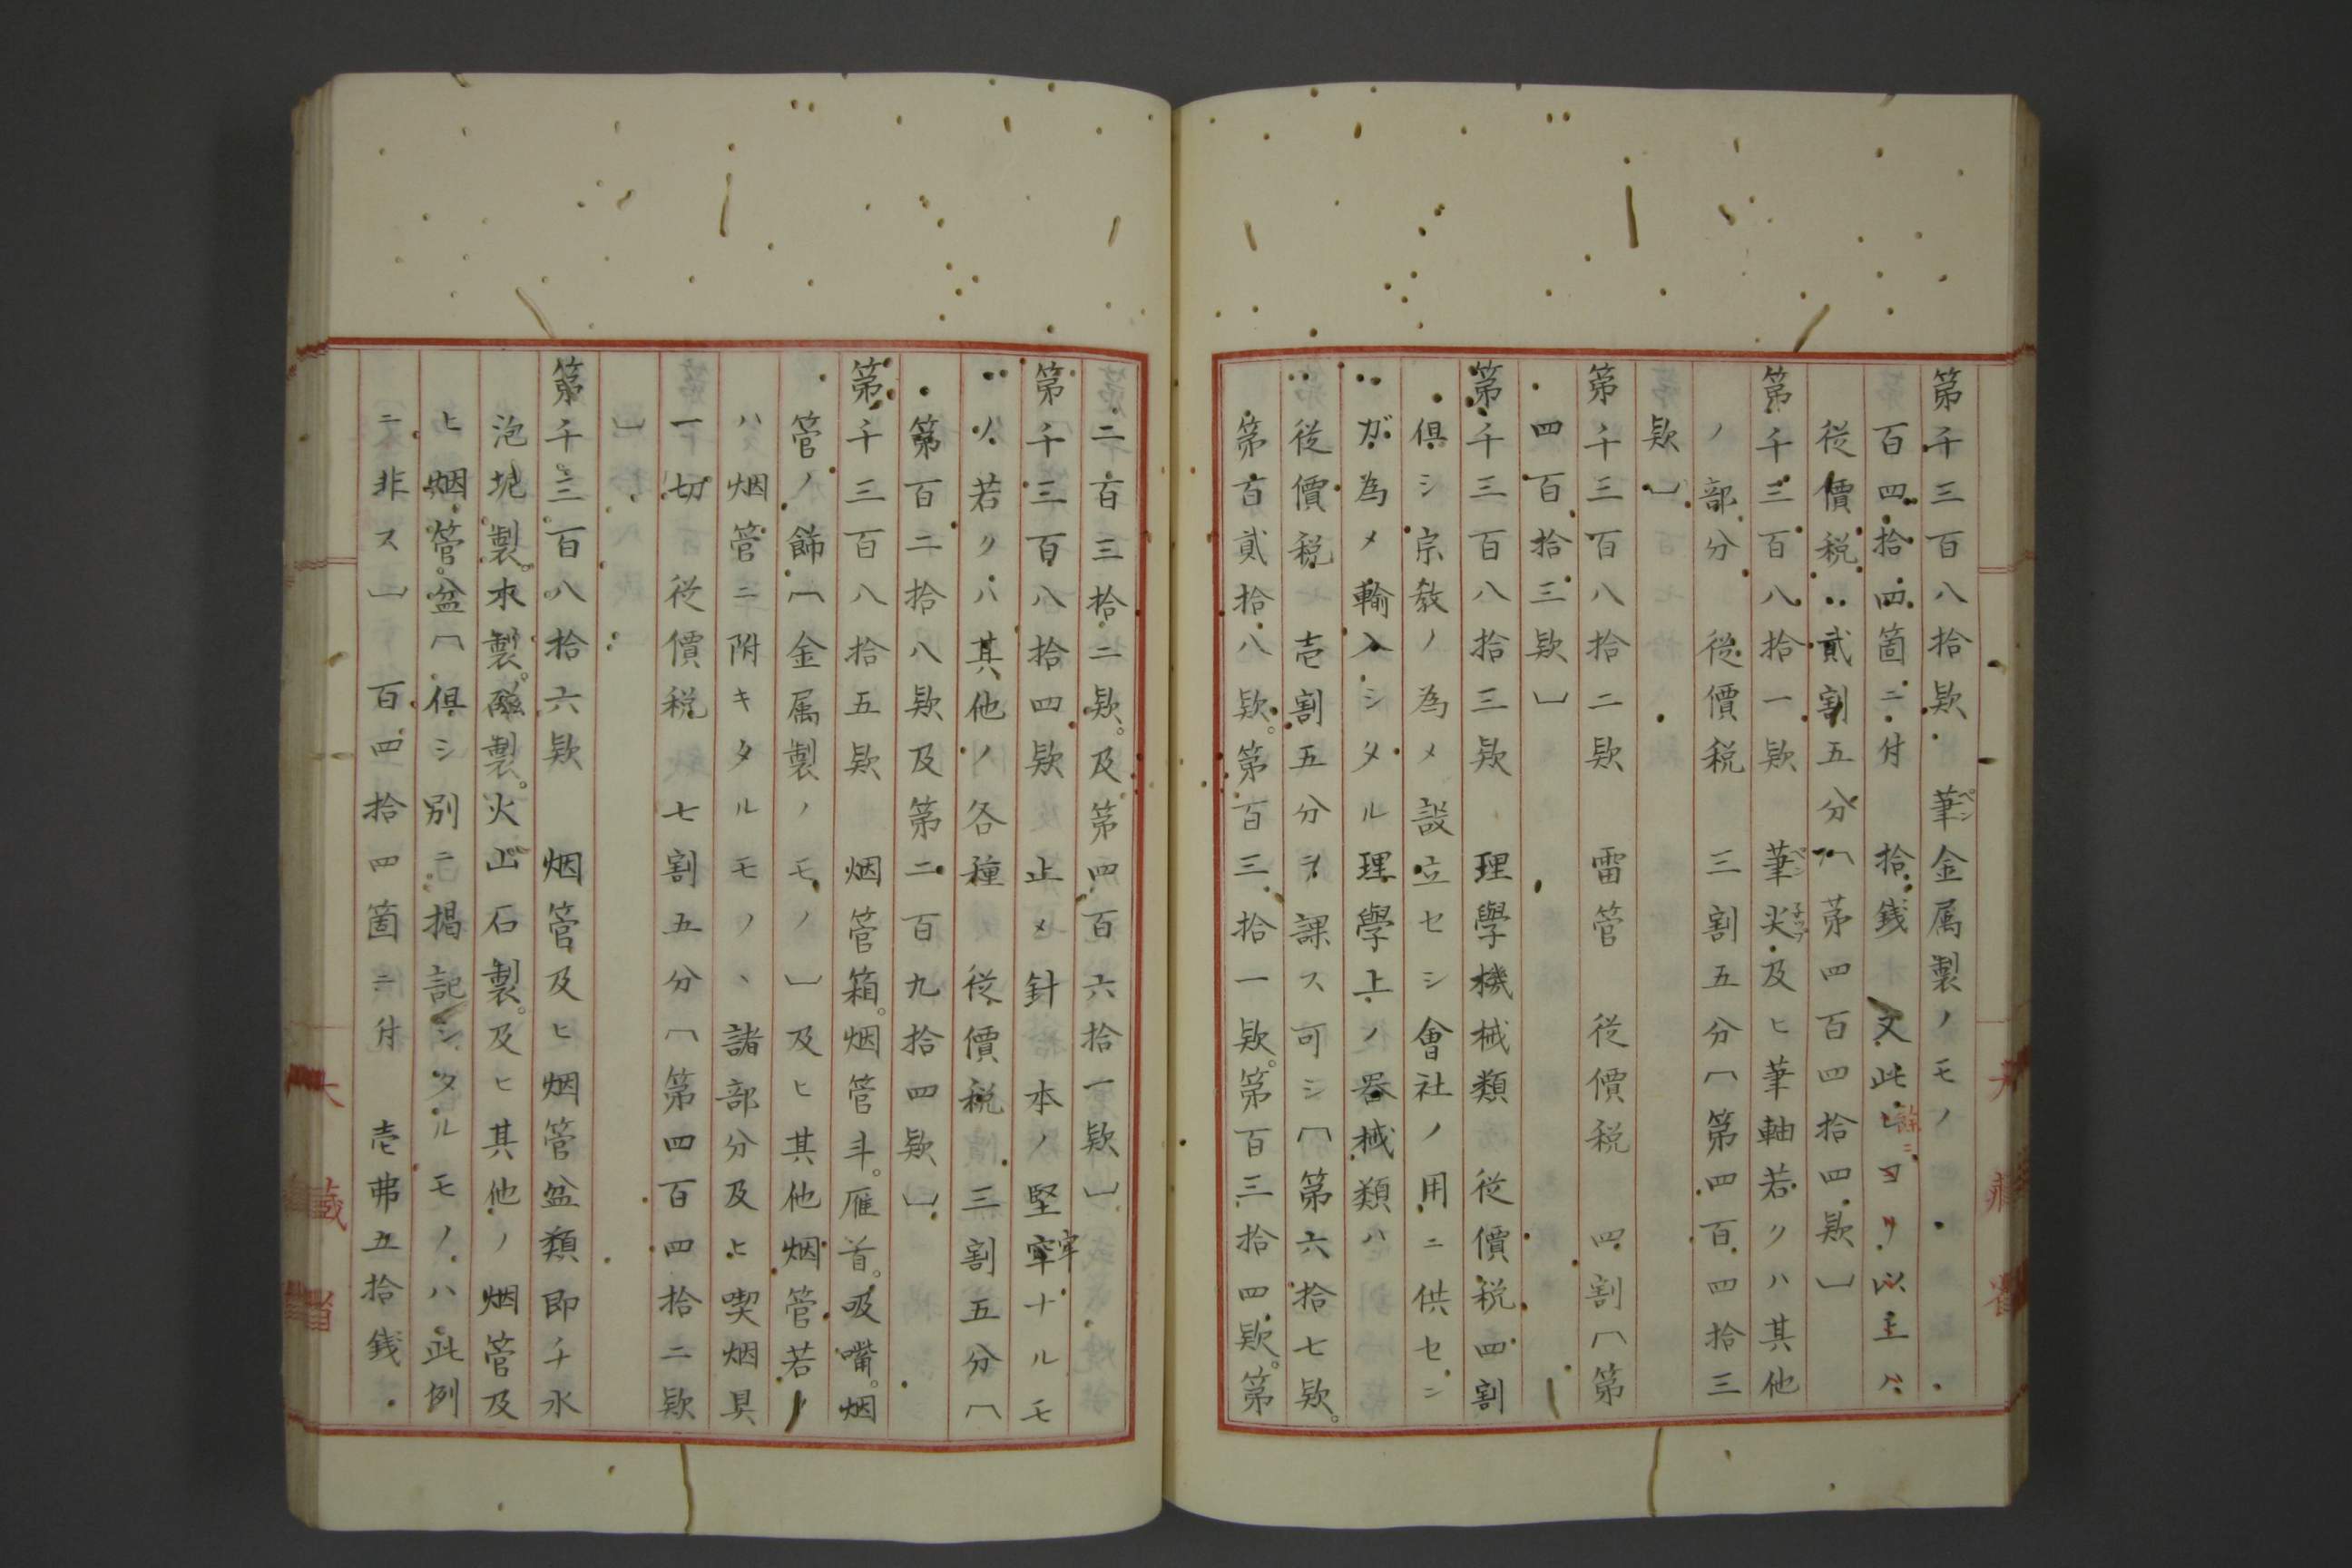 第千三百八拾欵 筆金属製ノモノ
ペン
百四拾四箇ニ付 拾銭 文此ヒヨリ以主ハ
餘ニ
従價税 貳割五分﹝第四百四拾四欵﹞
第千三百八拾一欵 筆尖及ヒ筆軸若クハ其他
ペン
ノ部分 従價税 三割五分﹝第四百四拾三
欵﹞
第千三百八拾二欵 雷管 従價税 四割﹝第
四百拾三欵﹞
第千三百八拾三欵 理學機械類 従價税四割
倶シ宗教ノ為メ設立セシ會社ノ用ニ供セン
ガ為メ輸入シタル理學上ノ器械類ハ
従價税 壱割五分ヲ課ス可シ﹝第六拾七欵。
第百貳拾八欵。第百三拾一欵。第百三拾四欵。第
大藏省
二百三拾二欵。及第四百六拾一欵﹞
第千三百八拾四欵 止メ針 本ノ堅窂ナルモ
牢
ノ若クハ其他ノ各種 従價税 三割五分﹝
第百二拾八欵及第二百九拾四欵﹞
第千三百八拾五欵 烟管箱。烟管斗。雁首。吸嘴。烟
管ノ飾﹝金属製ノモノ﹞及ヒ其他烟管若ク
ハ烟管ニ附キタルモノヽ諸部分及ヒ喫烟具
一切 従價税 七割五分﹝第四百四拾二欵
﹞
第千三百八拾六欵 烟管及ヒ烟管盆類即チ水
泡坭製。木製。磁製。火山石製。及ヒ其他ノ烟管及
ヒ烟管盆﹝倶シ別ニ掲記シタルモノハ此例
ニ非ス﹞ 百四拾四箇ニ付 壱弗五拾銭
大藏省